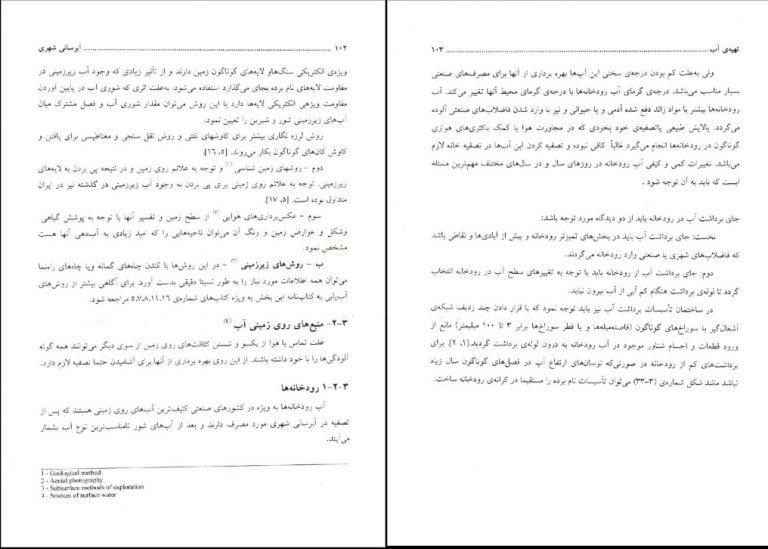 ۱۰۲ ........ آبرسانی شهری
ویژه‌ی الکتریکی سنگ‌هاو لایه‌های گوناگون زمین دارند و از تأثیری زیادی که وجود آب زیرزمینی در
مقاومت لایه‌های نام برده بجای می‌گذارد استفاده می‌شود. به‌علت اثری که شوری آب در پایین آوردن
مقاومت ویژهی الکتریکی لایه‌ها دارد با این روش می‌توان مقدار شوری آب و فصل مشترک میان
آب‌های زیرزمینی شور و شیرین را تعیین نمود.
روش لرزه نگاری بیشتر برای کاوشهای نفتی و روش ثقل سنجی و مغناطیسی برای یافتن و
کاوش کان‌های گوناگون بکار می‌روند. [۵، ۱۶].
دوم – روشهای زمین شناسی (۱) و توجه به علائم روی زمین و در نتیجه پی بردن به لایه‌های
زیرزمینی. توجه به علائم روی زمینی برای پی بردن به وجود آب زیرزمینی در گذشته نیز در ایران
متداول بوده است. [۵، ۱۷].
سوم – عکس‌برداری‌های هوایی (۲) از سطح زمین و تفسیر آنها با توجه به پوشش گیاهی
وشکل و عوارض زمین و رنگ آن می‌توان ناحیه‌هایی را که امید زیادی به آب‌دهی آنها هست
مشخص نمود.
ب – روش‌های زیرزمینی (۳) – در این روش‌ها با کندن چاه‌های گمانه ویا چاه‌های راهنما
می‌توان همه اطلاعات مورد نیاز را به طور نسبتا دقیقی بدست آورد. برای آگاهی بیشتر از روش‌های
آب‌یابی به کتاب‌نامه این بخش به ویژه کتاب‌های شماره‌ی ۵،۷،۸،۱۱،۱۶ مراجعه شود.
۳-۲- منبع‌های روی زمینی آب (۴)
علت تماس با هوا از یکسو و شستن کثافت‌های روی زمین از سوی دیگر می‌توانند همه گونه
آلودگی‌ها را با خود داشته باشند. از این روی بهره برداری از آنها برای آشامیدن حتما تصفیه لازم دارد.
۳-۲-۱ رودخانه‌ها
آب رودخانه‌ها به ویژه در کشورهای صنعتی کثیف‌ترین آب‌های روی زمینی هستند که پس از
تصفیه در آبرسانی شهری مورد مصرف دارند و بعد از آب‌های شور نامناسب‌ترین نوع آب بشمار
می‌آیند.
1 - Geological method
2 - Aecial photography
3 - Subsurface methods of exploration
4 - Sources of surface water
تهیه‌ی آب ........ ۱۰۳
ولی به‌علت کم بودن درجه‌ی سختی این آب‌ها بهره برداری از آنها برای مصرف‌های صنعتی
بسیار مناسب می‌باشد. درجه‌ی گرمای آب رودخانه‌ها با درجه‌ی گرمای محیط آنها تغییر می‌کند. آب
رودخانه‌ها بیشتر با مواد زائد دفع شده آدمی و یا حیوانی و نیز با وارد شدن فاضلاب‌های صنعتی آلوده
می‌گردد. پالایش طبیعی یاتصفیه‌ی خود بخودی که در مجاورت هوا با کمک باکتری‌های هوازی
گوناگون در رودخانه‌ها انجام می‌گیرد غالباً کافی نبوده و تصفیه کردن این آب‌ها در تصفیه خانه لازم
می‌باشد. تغییرات کمی و کیفی آب رودخانه در روزهای سال و در سال‌های مختلف مهم‌ترین مسئله
ایست که باید به آن توجه شود .
جای برداشت آب در رودخانه باید از دو دیدگاه مورد توجه باشد:
نخست: جای برداشت آب باید در بخش‌های تمیزتر رودخانه و پیش از آبادی‌ها و نقاطی باشد
که فاضلاب‌های شهری یا صنعتی وارد رودخانه می‌گردند.
دوم: جای برداشت آب از رودخانه باید با توجه به تغییرهای سطح آب در رودخانه انتخاب
گردد تا لوله‌ی برداشت هنگام کم آبی از آب بیرون نیاید.
در ساختمان تأسیسات برداشت آب نیز باید توجه نمود که با قرار دادن چند ردیف شبکه‌ی
آشغال‌گیر با سوراخ‌های گوناگون (فاصله‌میله‌ها و یا قطر سوراخ‌ها برابر ۳ تا ۱۰۰ میلیمتر) مانع از
ورود قطعات و اجسام شناور موجود در آب رودخانه به درون لوله‌ی برداشت گردید.[۱، ۲]. برای
برداشت‌های کم از رودخانه در صورتی‌که نوسان‌های ارتفاع آب در فصل‌های گوناگون سال زیاد
نباشد مانند شکل شماره‌ی (۳-۳۳) می‌توان تأسیسات نام برده را مستقیما در کرانه‌ی رودخانه ساخت.